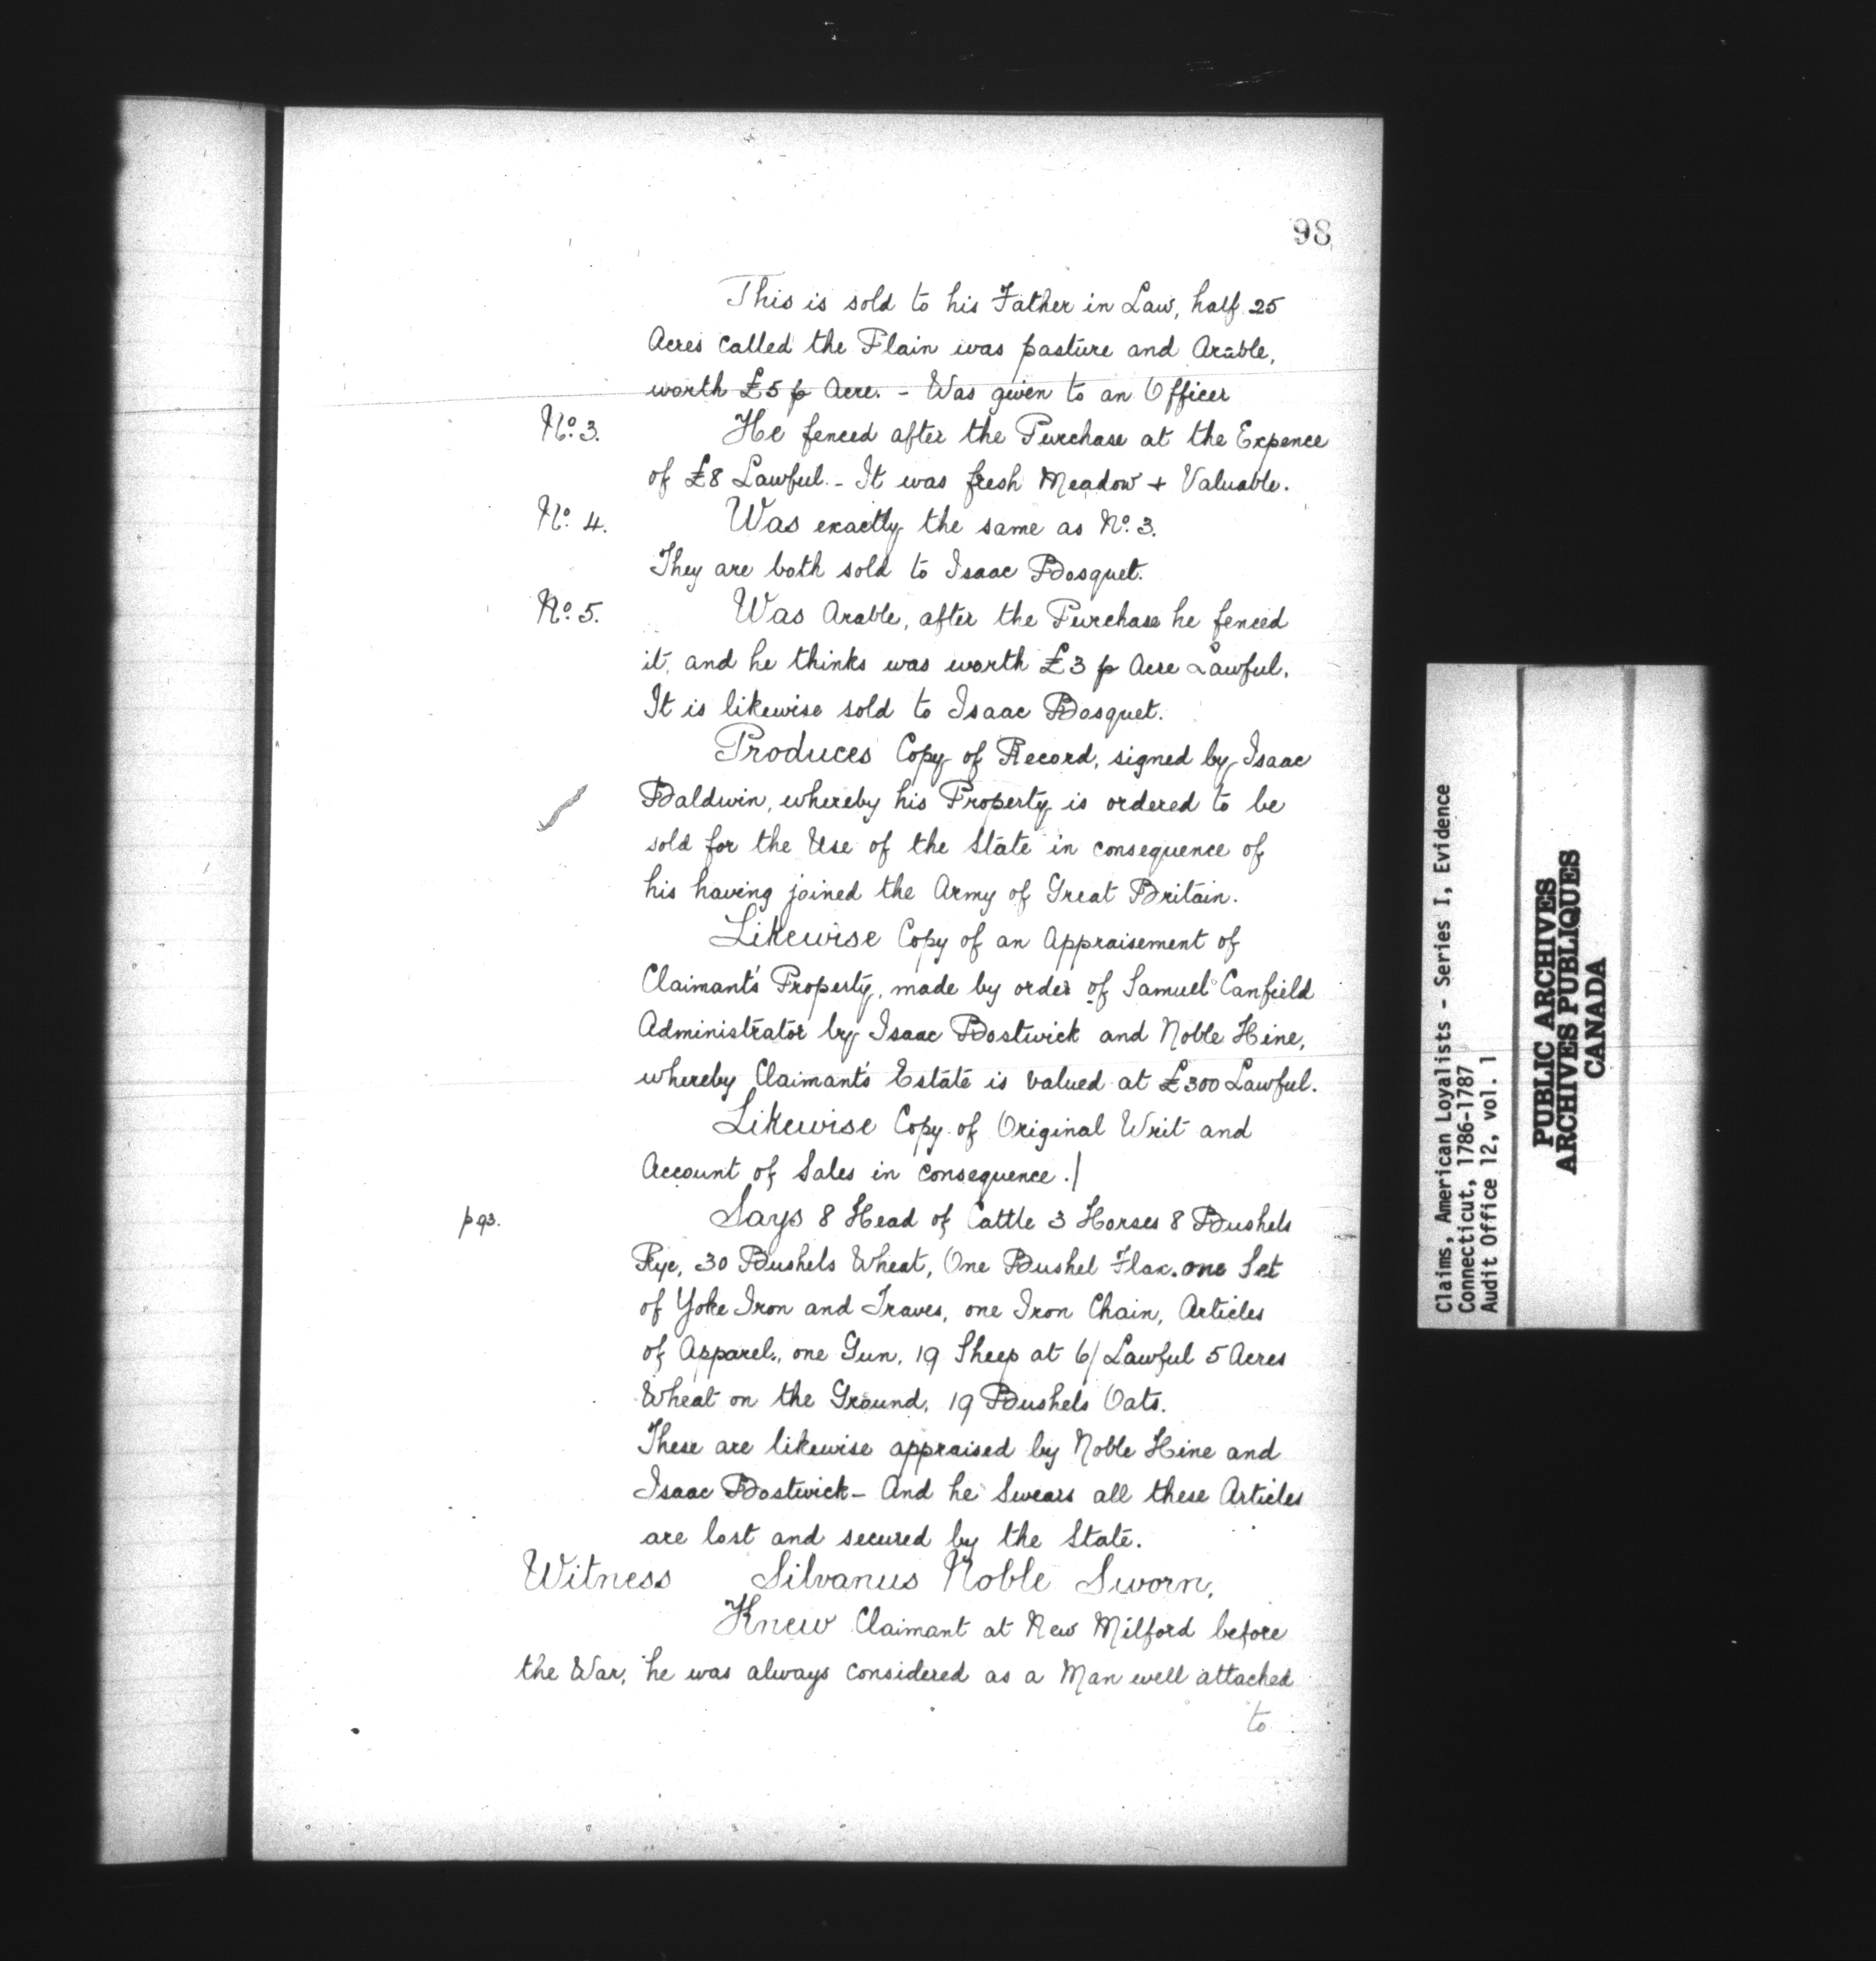 98
This is sold to his Father in Law, half 25
Acres called the Plain was pasture and Arable,
worth £5 p Acre. - Was given to an Officer
No. 3. He fenced after the Purchase at the Expence
of £8 Lawful. - It was fresh Meadow + Valuable.
No. 4. Was exactly the same as No. 3.
They are both sold to Isaac Bosquet.
No. 5. Was Arable, after the Purchase he fenced
it, and he thinks was worth £3 p Acre Lawful.
It is likewise sold to Isaac Bosquet.
Produces Copy of Record, signed by Isaac
Baldwin, whereby his Property is ordered to be
sold for the Use of the State in consequence of
his having joined the Army of Great Britain.
Likewise Copy of an Appraisement of
Claimant's Property, made by order of Samuel Canfield
Administrator by Isaac Bostwick and Noble Hine,
whereby Claimant's Estate is valued at £300 Lawful.
Likewise Copy of Original Writ and
Account of Sales in consequence./
p 93. Says 8 Head of Cattle 3 Horses 8 Bushels
Rye, 30 Bushels Wheat, One Bushel Flax. one Set
of Yoke Iron and Traves, one Iron Chain, Articles
of Apparel., one Gun, 19 Sheep at 6/ Lawful 5 Acres
Wheat on the Ground, 19 Bushels Oats.
These are likewise appraised by Noble Hine and
Isaac Bostwick - And he Swears all these Articles
are lost and secured by the State.
Witness Silvanus Noble Sworn,
Knew Claimant at New Milford before
the War, he was always considered as a Man well attached
to
Claims, American Loyalists - Series I, Evidence
Connecticut, 1786-1787
Audit Office 12, vol. 1
PUBLIC ARCHIVES
ARCHIVES PUBLIQUES
CANADA